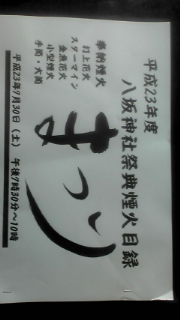 平成23年度
八坂神社祭典煙火目録
奉納煙火
打上花火
スターマイン
金魚花火
小型煙火
手筒・大筒
まつり
平成23年7月30日(土) 午後7時30分~10時